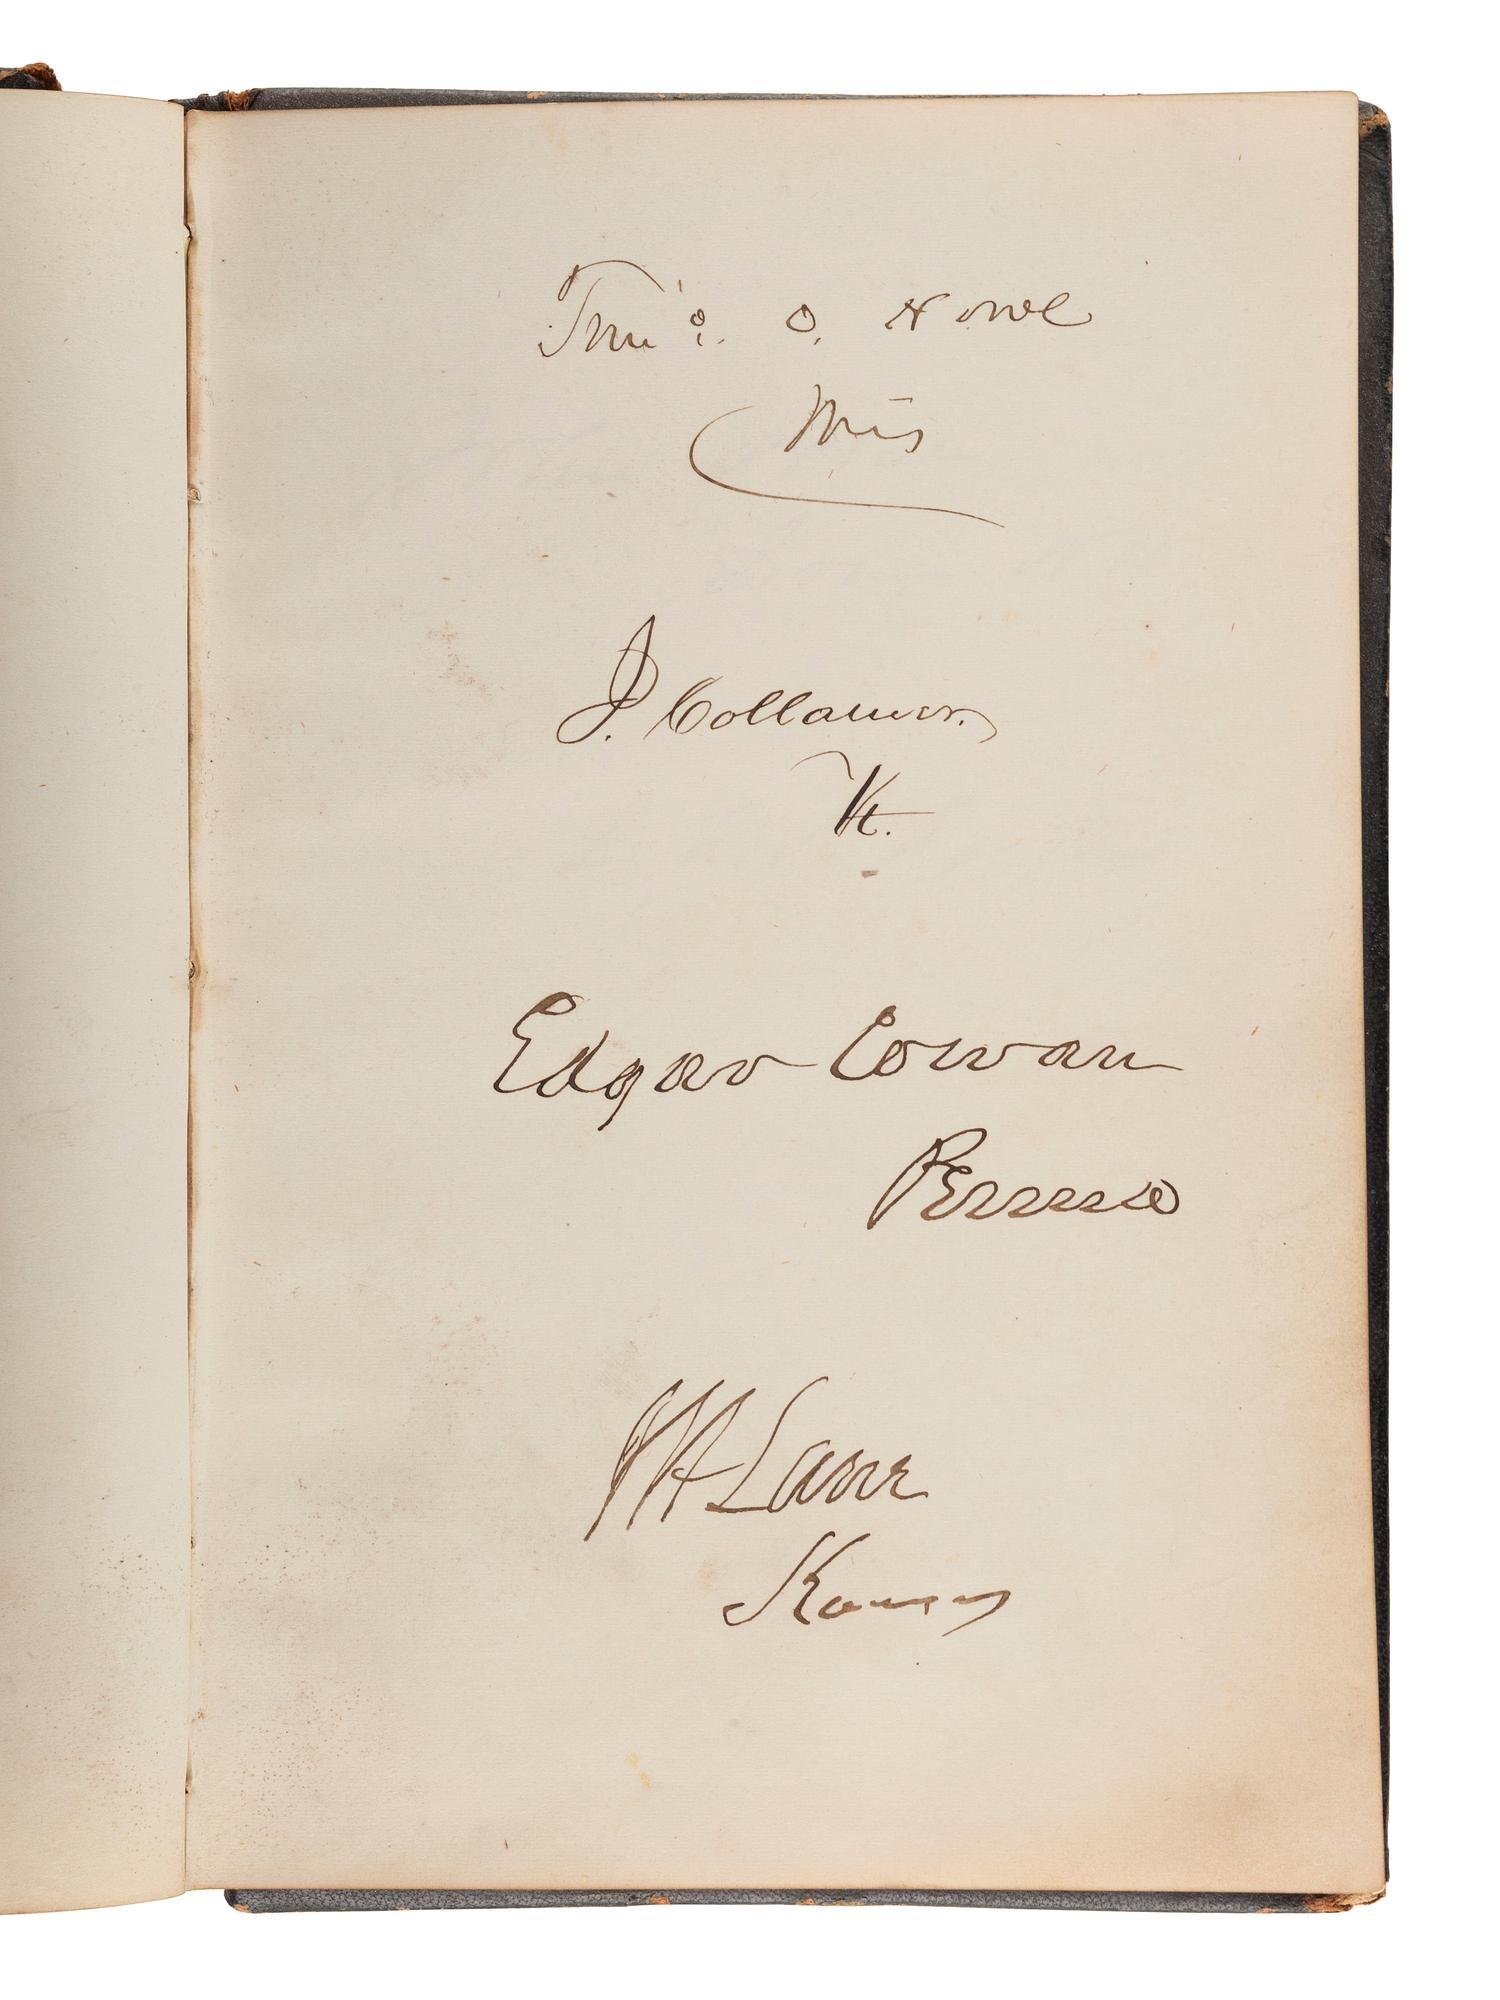 Tim'o. O. Howe
Wis
J. Collamer.
Vt.
Edgar Cowan
Penna
J H Lane
Kansas